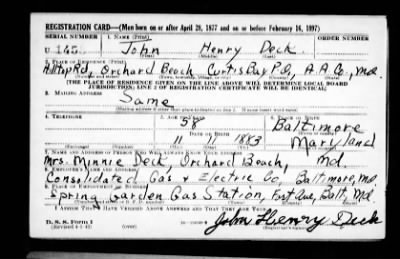 REGISTRATION CARD—(Men born on or after April 28, 1877 and on or before February 16, 1897)
SERIAL NUMBER 1. NAME (Print) ORDER NUMBER
U 145 John Henry Deck
(First) (Middle) (Last)
2. PLACE OF RESIDENCE (Print)
Hilltop Rd, Orchard Beach Curtis Bay P.O., A.A. Co., Md.
[THE PLACE OF RESIDENCE GIVEN ON THE LINE ABOVE WILL DETERMINE LOCAL BOARD
JURISDICTION; LINE 2 OF REGISTRATION CERTIFICATE WILL BE IDENTICAL]
3. MAILING ADDRESS
Same
4. TELEPHONE 5. AGE IN YEARS 6. PLACE OF BIRTH
58 Baltimore
DATE OF BIRTH
11 1883 Maryland
7. NAME AND ADDRESS OF PERSON WHO WILL ALWAYS KNOW YOUR ADDRESS
Mrs. Minnie Deck, Orchard Beach, Md.
8. EMPLOYER'S NAME AND ADDRESS
Consolidated Gas & Electric Co, Baltimore, Md
9. PLACE OF EMPLOYMENT OR BUSINESS
Spring Garden Gas Station, Fort Ave, Balt, Md
I AFFIRM THAT I HAVE VERIFIED ABOVE ANSWERS AND THAT THEY ARE TRUE.
D. S. S. Form 1
(Revised 4-1-42) John Henry Deck